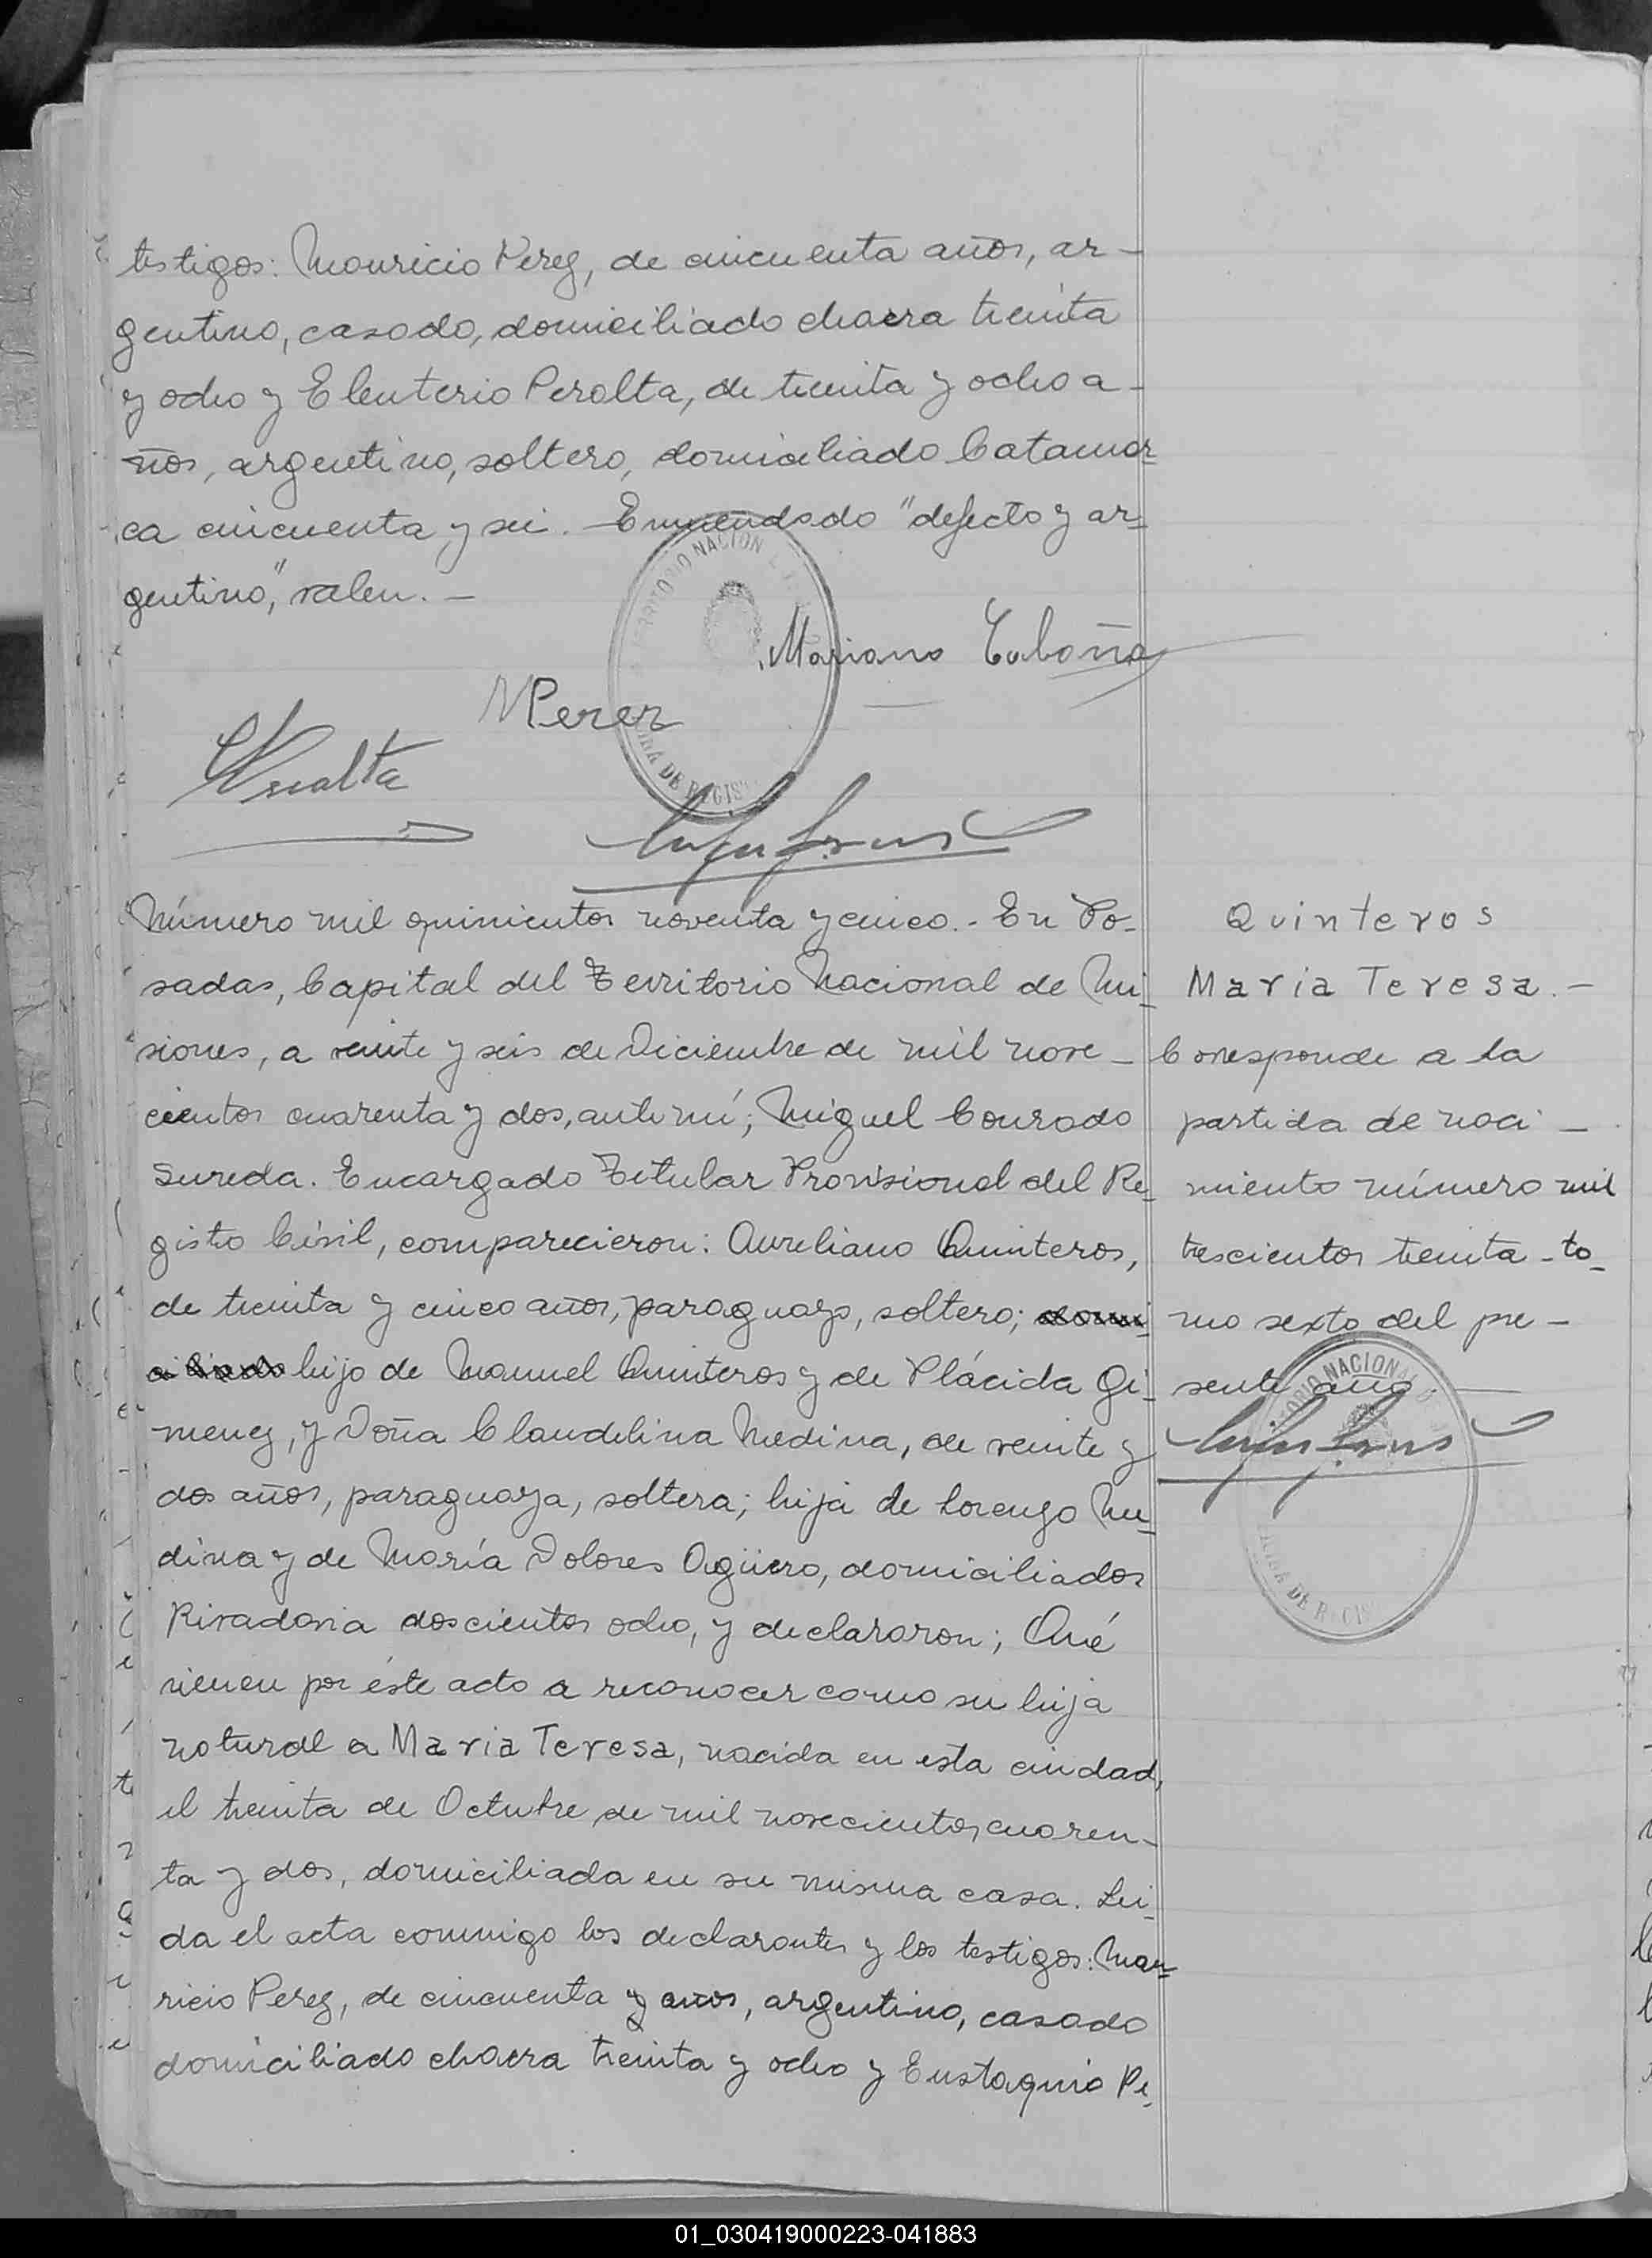 testigos: Mauricio Perez, de cincuenta años, ar-
gentino, casado, domiciliado chacra treinta
y ocho y Eleuterio Peralta, de treinta y ocho a-
ños, argentino, soltero, domiciliado Catamar-
ca cincuenta y seis. Enmendado "defecto y ar-
gentino," valen. -
TERRITORIO NACIONAL
DE REGIS
Mariano Cabaña
MPerez
EPeralta
Número mil quinientos noventa y cinco.- En Po-
sadas, Capital del Territorio Nacional de Mi-
siones, a veinte y seis de Diciembre de mil nove-
cientos cuarenta y dos, ante mí; Miguel Conrado
Sureda. Encargado Titular Provisional del Re-
gistro Civil, comparecieron: Aureliano Quinteros,
de treinta y cinco años, paraguayo, soltero; domi-
ciliado hijo de Manuel Quinteros y de Plácida Gi-
menez, y Doña Claudelina Medina, de veinte y
dos años, paraguaya, soltera; hija de Lorenzo Me-
dina y de María Dolores Agüero, domiciliados
Rivadavia doscientos ocho, y declararon; Qué
vienen por éste acto a reconocer como su hija
natural a Maria Teresa, nacida en esta ciudad,
el treinta de Octubre de mil novecientos cuaren-
ta y dos, domiciliada en su misma casa. Lei-
da el acta conmigo los declarantes y los testigos: Mau-
ricio Perez, de cincuenta y años, argentino, casado
domiciliado chacra treinta y ocho y Eustaquio Pe-
Quinteros
Maria Teresa.-
Corresponde a la
partida de naci-
miento número mil
trescientos treinta - to-
mo sexto del pre-
sente año.
NACIONAL
DE REGIS
01_030419000223-041883